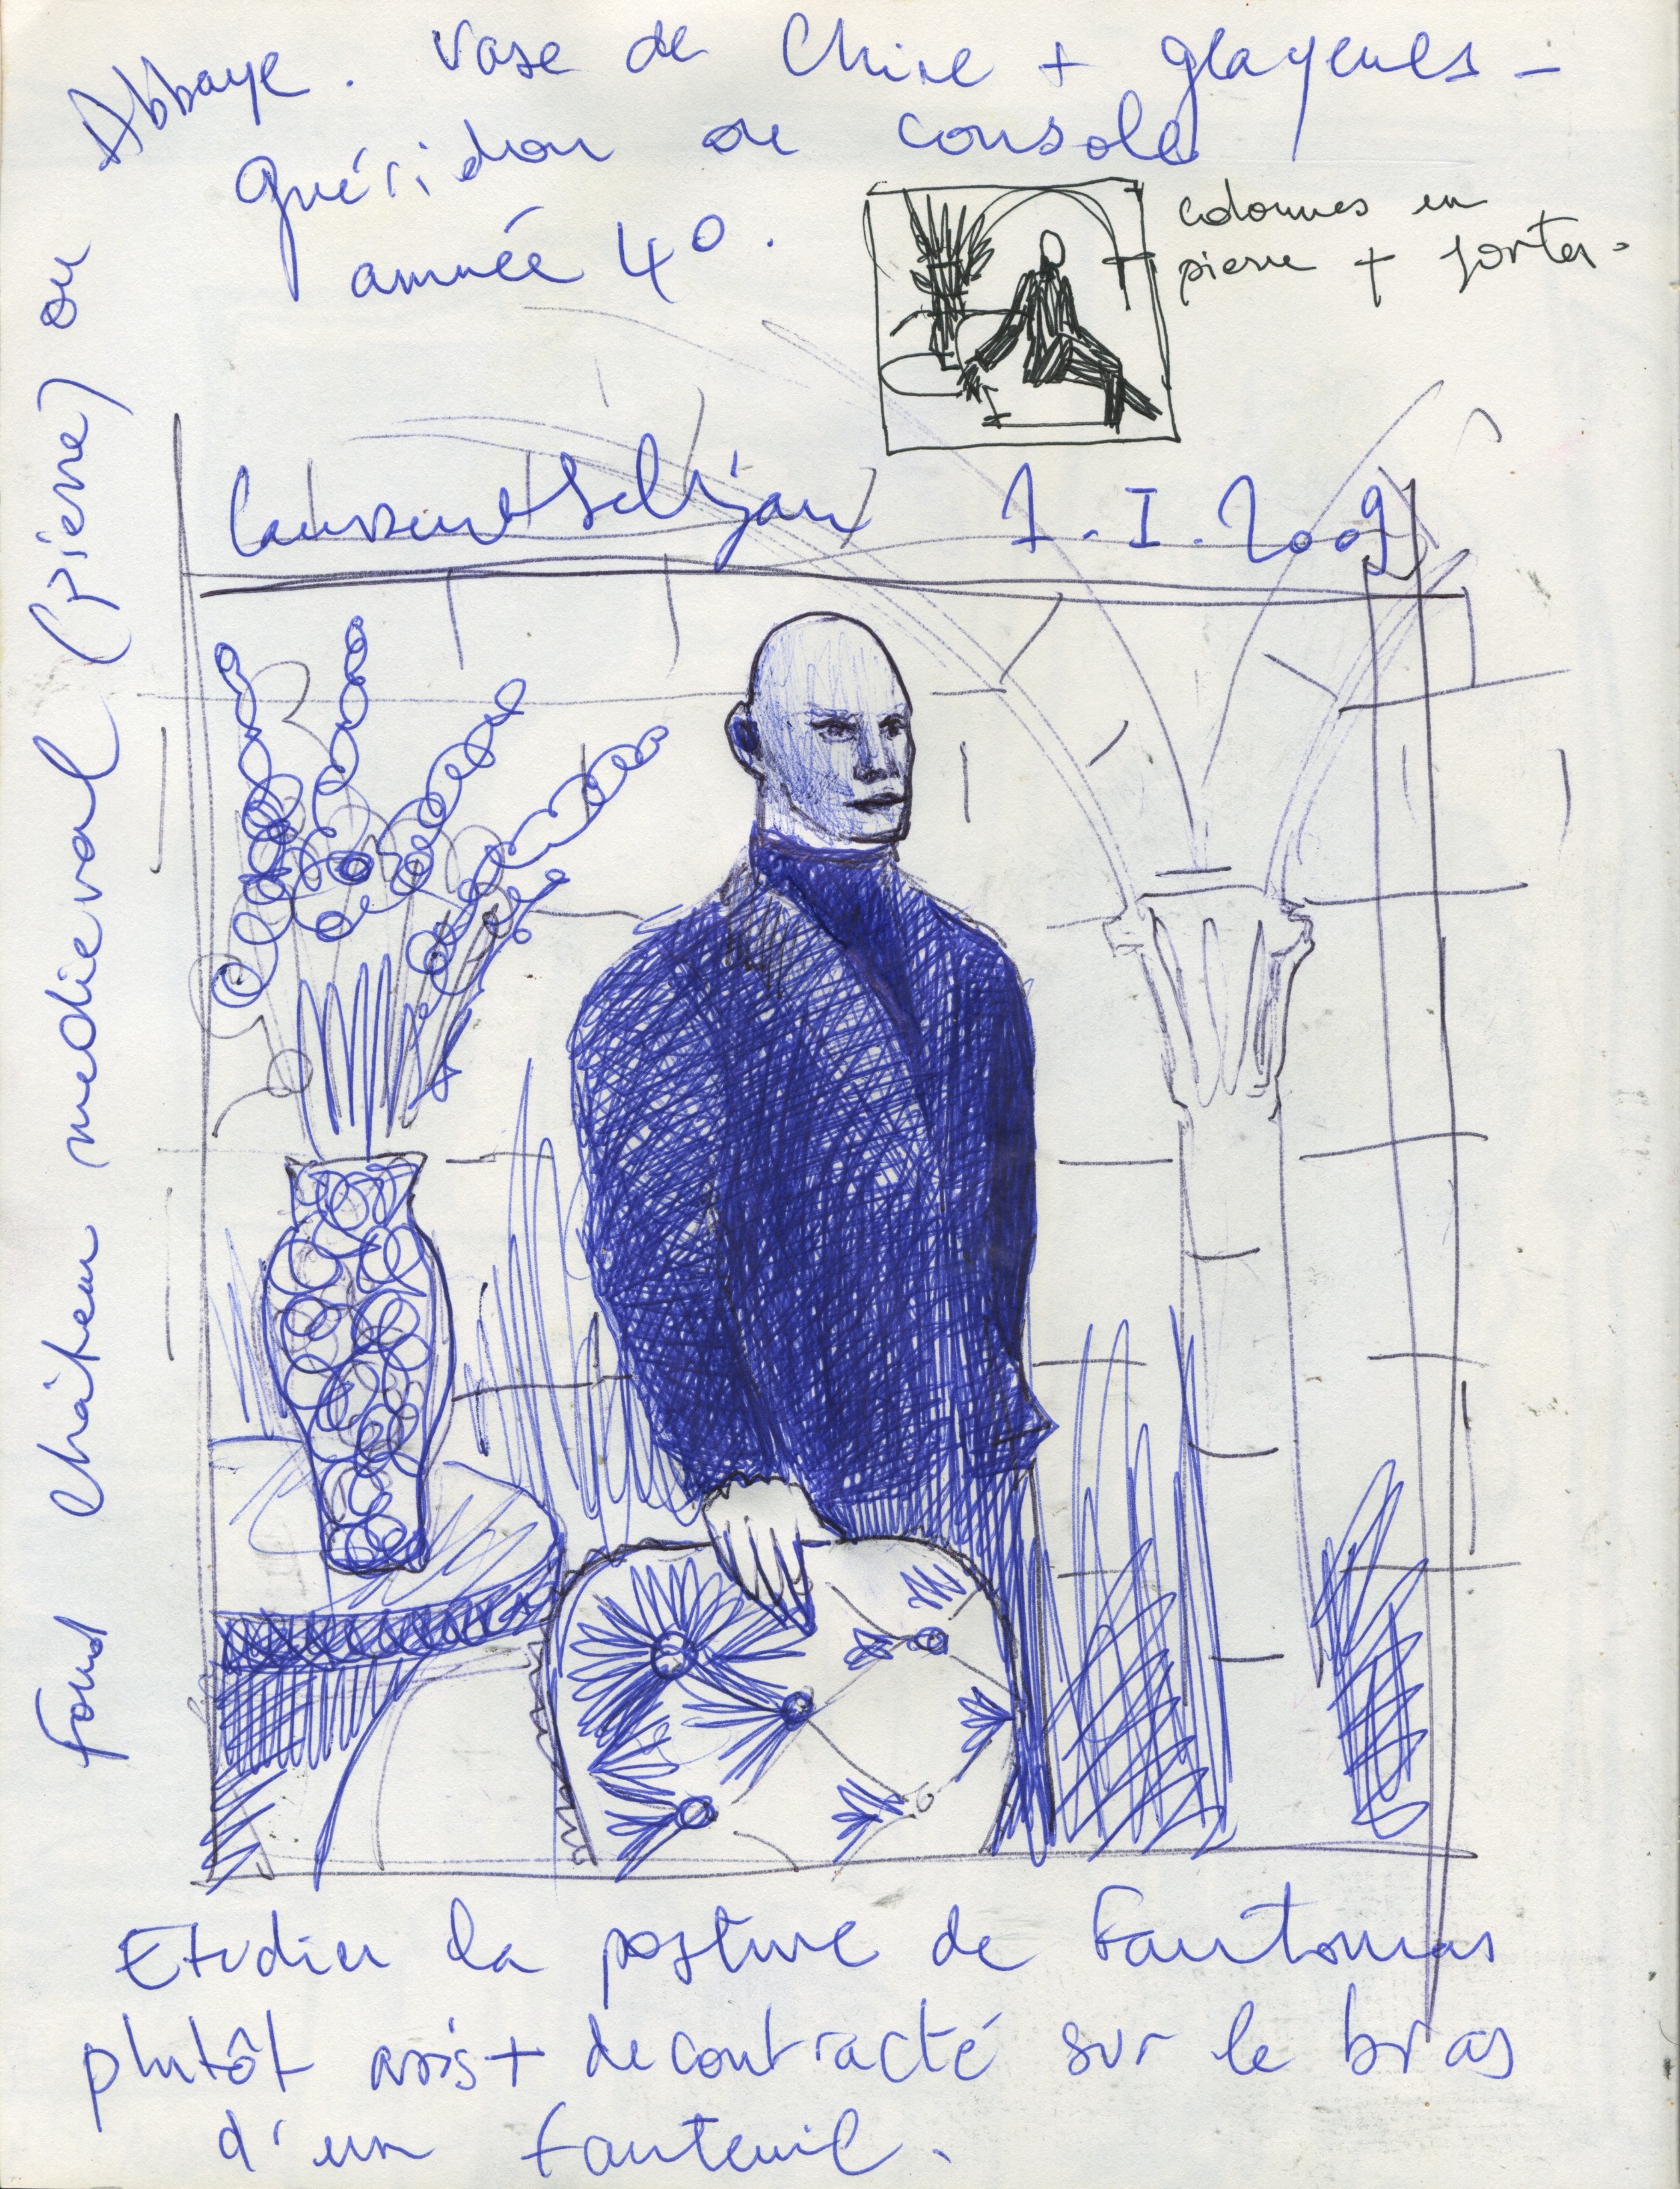 Fond Château medieval (pierre) ou
Abbaye. Vase de Chine + glayeuls -
Guéridon ou console
année 40.
colonnes en
pierre +
1.I.2009
Etudier la posture de Fantomas
plutôt assis + decontracté sur le bras
d'un fauteuil.